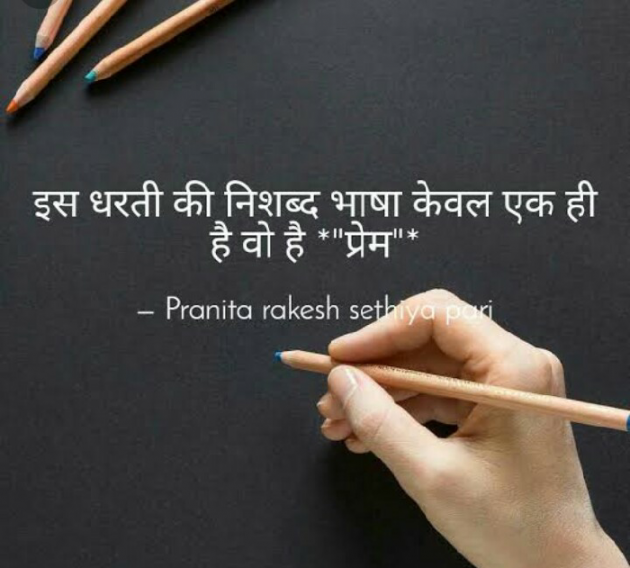 इस धरती की निशब्द भाषा केवल एक ही
है वो है *"प्रेम"*
– Pranita rakesh sethiya pari